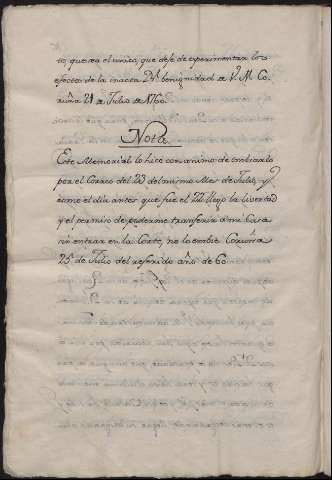 to, que sea el unico, que deje de experimentar los
efectos de la innata Rl. benignidad de V. M. Co-
ruña 21 de Julio de 1760.
Nota
Este Memorial lo hice con animo de embiarlo
por el Correo del 23 del mismo Mes de Julio, y
como el dia antes que fue el 22 llego la libertad
y el permiso de poderme transferir a mi Casa
sin entrar en la Corte, no lo embie Coruña
25 de Julio del referido año de 60.